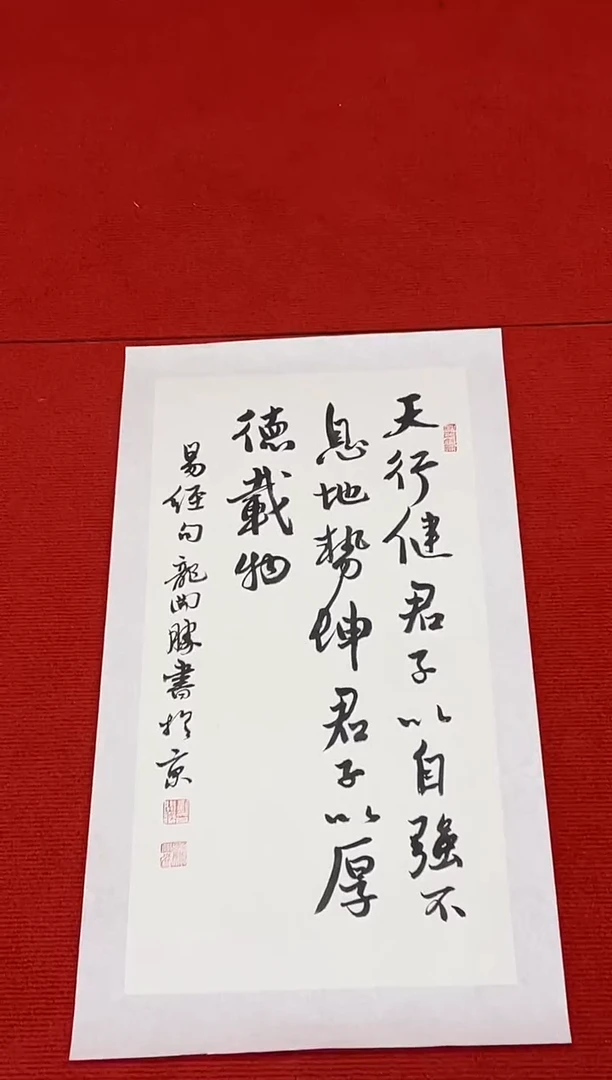 天行健君子以自強不
息地勢坤君子以厚
德載物
易經句龍開勝書於京